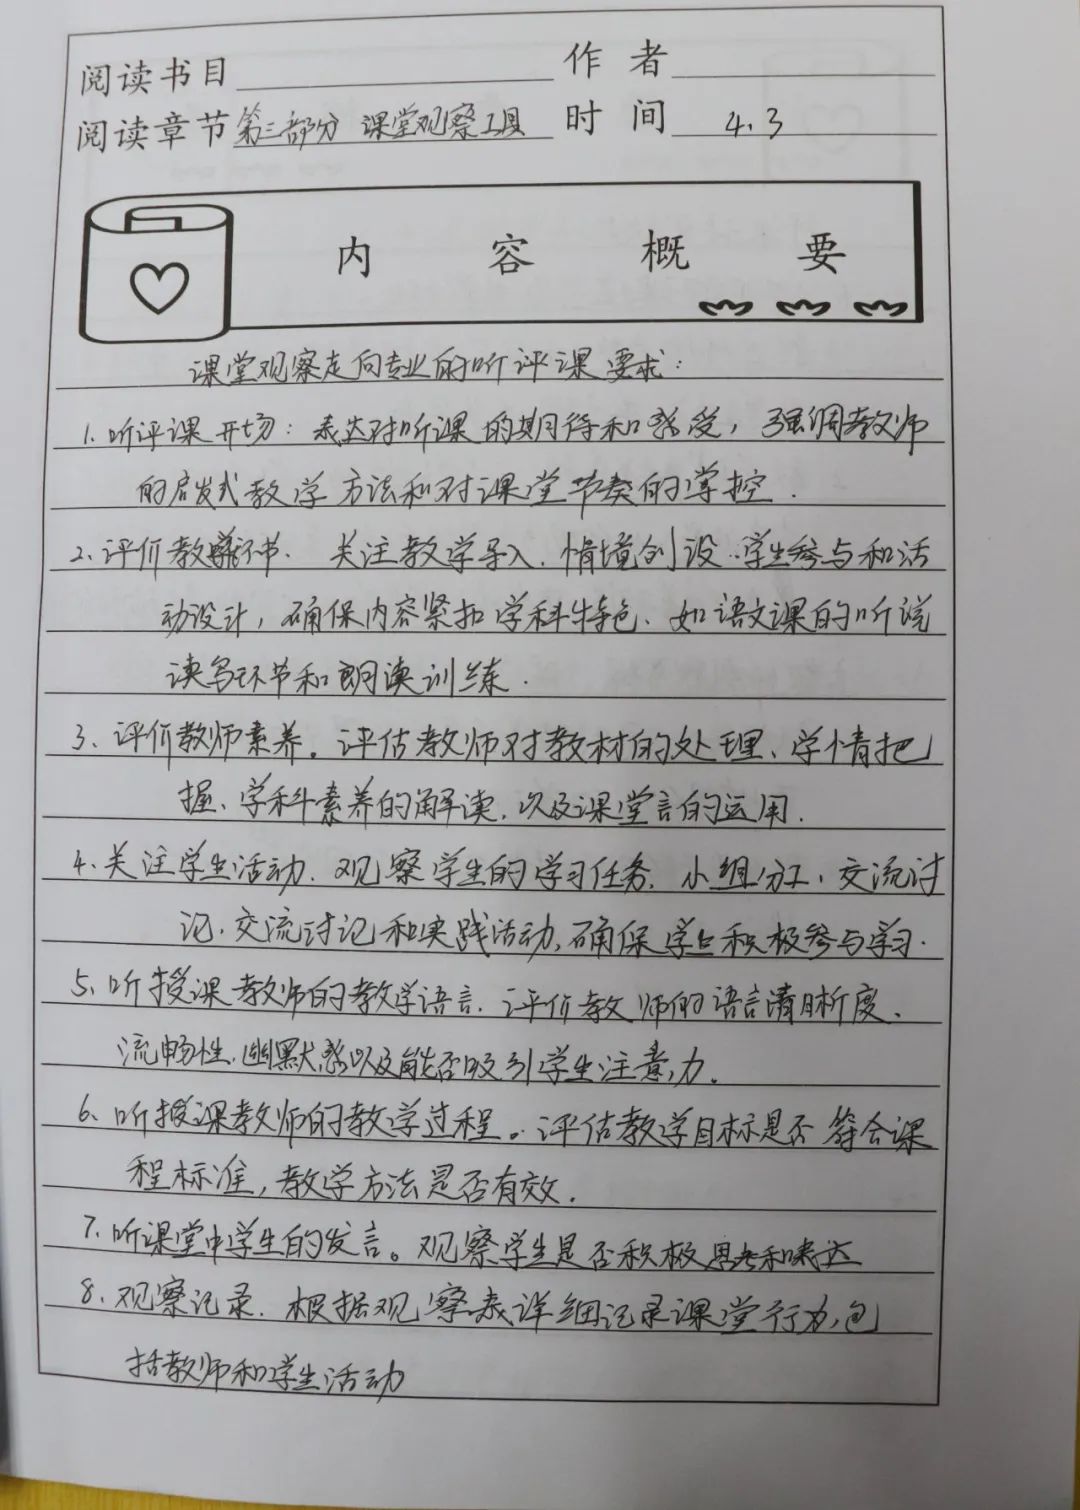 阅读书目 作者
阅读章节 第三部分 课堂观察工具 时间 4.3
内容概要
课堂观察走向专业的听评课要求:
1. 听评课开场: 表达对听课的期待和感受, 强调教师
的启发式教学方法和对课堂节奏的掌控.
2、评价教学环节. 关注教学导入. 情境创设. 学生参与和活
动设计, 确保内容紧扣学科特色、如语文课的听说
读写环节和朗读训练.
3、评价教师素养。评估教师对教材的处理、学情把
握、学科素养的解读. 以及课堂言的运用.
4、关注学生活动. 观察学生的学习任务. 小组分工、交流讨
论. 交流讨论和实践活动, 确保学生积极参与学习.
5、听授课教师的教学语言. 评价教师的语言清晰度、
流畅性. 幽默感以及能否吸引学生注意力.
6、听授课教师的教学过程。评估教学目标是否符合课
程标准, 教学方法是否有效.
7. 听课堂中学生的发言。观察学生是否积极思考和表达
8. 观察记录. 根据观察表详细记录课堂行为, 包
括教师和学生活动